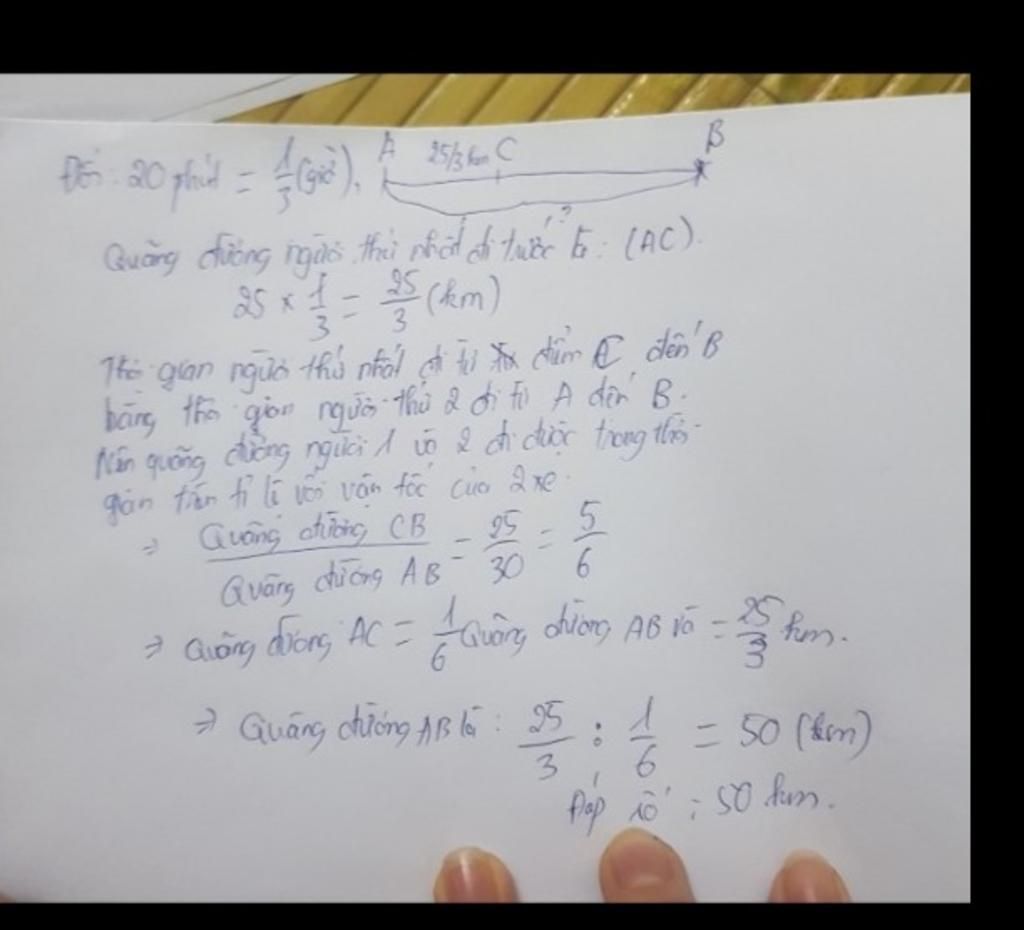 Đổi: 20 phút = 1/3 (giờ).
A 25/3 km C B
?
Quãng đường người thứ nhất đi trước là: (AC).
25 × 1/3 = 25/3 (km)
Thời gian người thứ nhất đi từ điểm C đến B
bằng thời gian người thứ 2 đi từ A đến B.
Nên quãng đường người 1 và 2 đi được trong thời
gian trên tỉ lệ với vận tốc của 2 xe.
⇒ Quãng đường CB / Quãng đường AB = 25/30 = 5/6
⇒ Quãng đường AC = 1/6 Quãng đường AB và = 25/3 km.
⇒ Quãng đường AB là: 25/3 : 1/6 = 50 (km)
Đáp số: 50 km.